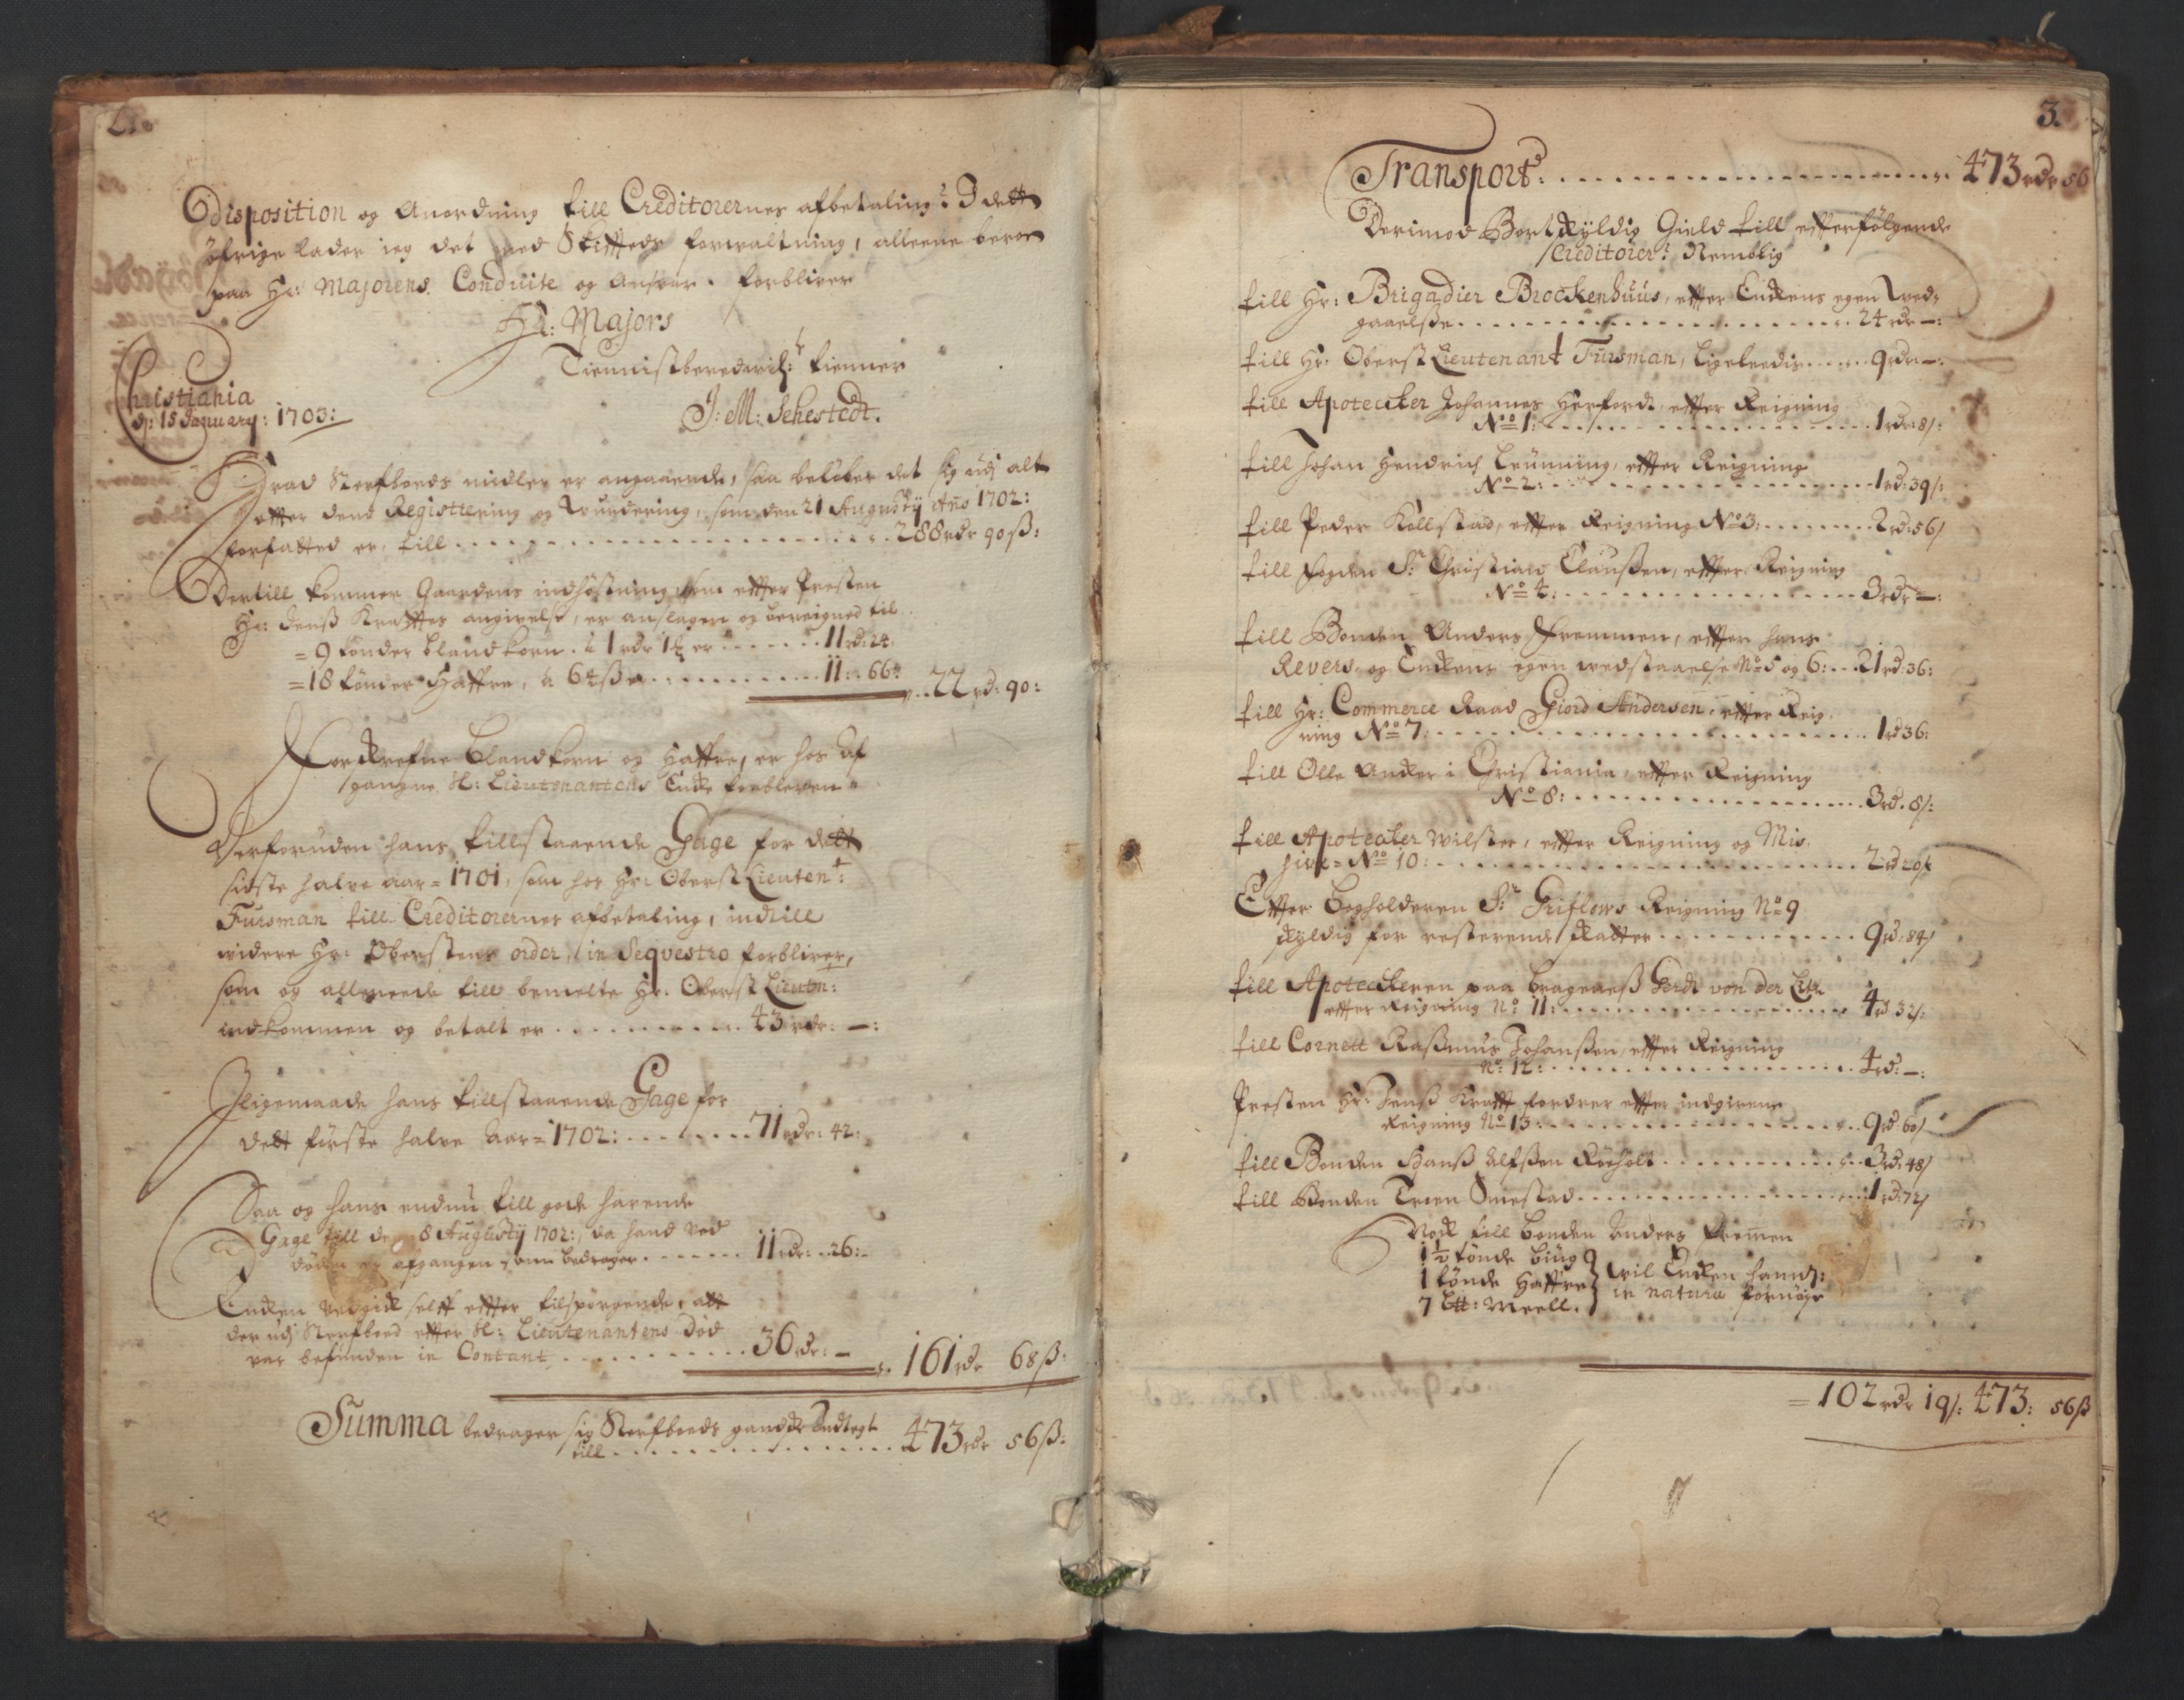 2.
disposition og Anordning till Creditorernes afbetaling: I dett
øfrige lader ieg det med Skiffteds forvaltning, alleene beroe
paa Hr: Majorens Conduite og Ansvar. forblifver
Hr: Majors
Tiennistberedvil: tienner
Christiania
d: 15 January: 1703:
J: M: Sehestedt.
Hvad Sterfboeds midler er angaaende, saa beløber det sig udj alt
effter dend Registrering og Vurdering, som den 21 Augusty Ano 1702:
forfatted er, till . . . . 288 rdr 90 ß:
Dertill kommer Gaardens indhøstning, som effter Presten
Hr: Jenß Krafftes angivelse, er anslagen og bereigned til
= 9 tønder blandkorn. à 1 rdr 1 ½ er . . . . 11 rd: 24.
= 18 tønder Haffre, à 62 ß er . . . . 11: 66:
22 rd: 90:
Forskrefne blandkorn og Haffre, er hos af
gangne Sl: Lieutenantens Encke forbleven
Derforuden hans tillstaaende Gage for dett
sidste halve aar = 1701, som hos Hr: Oberst Lieutent:
Fursman till Creditorernes afbetaling, indtill
videre Hr: Oberstens order, in Seqvestro forblifver,
som og allereede till bemelte Hr: Oberst Lieutn:
indkommen og betalt er . . . . 43 rdr: —:
Iligemaade hans tillstaaende Gage for
dett første halve Aar = 1702: . . . . 71 rdr: 42:
Saa og hans endnu till gode havende
Gage till den 8 Augusty 1702:, da hand ved
døden er afgangen som bedrager . . . . 11 rdr: 26:
Encken vedgick selff effter tilspørgende, att
der udj Sterfboed effter Sl: Lieutenantens død
var befunden in Contant . . . . 36 rdr: —
161 rdr 68 ß:
Summa bedrager sig Sterfboeds gandske Indtegt
till . . . . 473 rdr 56 ß:
3.
Transport: . . . . 473 rdr 56
Derimod Bortskyldig Gield till effterfølgende
Creditorer: Nemblig
till Hr: Brigadier Brockenhuus, effter Enckens egen ved-
gaaelße . . . . 24 rdr —:
till Hr: Oberst Lieutenant Fursman, ligeleedis . . . . 9 rdr: —:
till Apotecker Johannes Herfordt, effter Reigning
No 1: . . . . 1 rdr: 8 ß:
till Johan Hendrich Brünning, effter Reigning
No 2: . . . . 1 rd: 39 ß:
till Peder Kollstad, effter Reigning No 3: . . . . 2 rd: 56 ß
till fogden Sr: Christian Claußen, effter Reigning
No 4: . . . . 3 rdr —:
till Bonden Anders Fremmen, effter hans
Revers, og Enckens egen vedstaaelse No 5 og 6: . . 21 rd: 36:
till Hr: Commerce Raad Giord Andersen, effter Reig-
ning No 7: . . . . 1 rd 36:
till Olle Ancker i Christiania, effter Reigning
No 8: . . . . 3 rd. 8 ß:
till Apotecker Wilster, effter Reigning og Mis-
sive = No 10: . . . . 2 rd 20 ß
Effter Bogholderen Sr: Griflows Reigning No 9
skyldig for resterende skatter . . . . 9 rd: 84 ß
till Apoteckeren paa Bragneß Gerdt von der Lith
effter Reigning No: 11: . . . . 4 rd 32 ß:
till Cornett Raßmus Johanßen, effter Reigning
No: 12: . . . . 4 rd: —:
Presten Hr: Jenß Krafft fordrer effter indgivene
Reigning No 13: . . . . 9 rd 60 ß
till Bonden Hanß Alfßen Røeholt . . . . 3 rd: 48 ß
till Bonden Troen Smestad . . . . 1 rd: 72 ß
Nock till bonden Anders Fremmen
1 ½ tønde biug
1 tønde Haffre } vil Encken hannem:
7 Ltt: Meell. } in natura fornøye
= 102 rdr 19 ß: 473: 56 ß